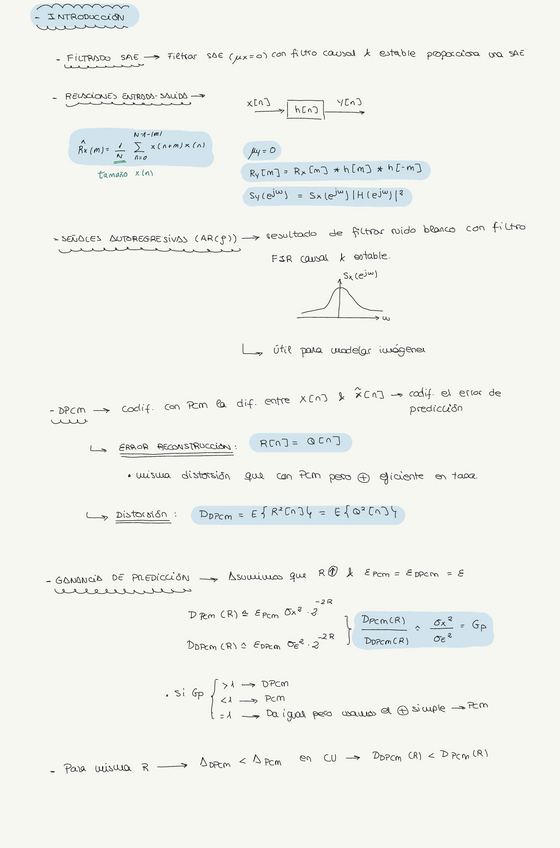 - INTRODUCCIÓN
- FILTRADO SAE → Filtrar SAE (μx=0) con filtro causal & estable proporciona una SAE
- RELACIONES ENTRADA-SALIDA →
X[n] → h[n] → Y[n]
R̂x(m) = 1/N Σ_{n=0}^{N-1-|m|} x(n+m) x(n)
tamaño x(n)
μy = 0
Ry[m] = Rx[m] * h[m] * h[-m]
Sy(e^{jω}) = Sx(e^{jω}) |H(e^{jω})|²
- SEÑALES AUTOREGRESIVAS (AR(ρ)) → resultado de filtrar ruido blanco con filtro
FIR causal & estable.
Sx(e^{jω})
ω
↳ útil para modelar imágenes
- DPCM → Codif. con PCM la dif. entre X[n] & x̃[n] → codif. el error de
predicción
↳ ERROR RECONSTRUCCIÓN: R[n] = Q[n]
• misma distorsión que con PCM pero ⊕ eficiente en tasa
↳ DISTORSIÓN: D_DPCM = E{R²[n]} = E{Q²[n]}
- GANANCIA DE PREDICCIÓN → Asumimos que R ↑ & ε_PCM = ε_DPCM = ε
D_PCM(R) ≃ ε_PCM σx² · 2^{-2R}
D_DPCM(R) ≃ ε_DPCM σE² · 2^{-2R}
D_PCM(R) / D_DPCM(R) ≃ σx² / σE² = Gp
• Si Gp { >1 → DPCM
<1 → PCM
=1 → Da igual pero usamos el ⊕ simple → PCM
- Para misma R → Δ_DPCM < Δ_PCM en CU → D_DPCM(R) < D_PCM(R)